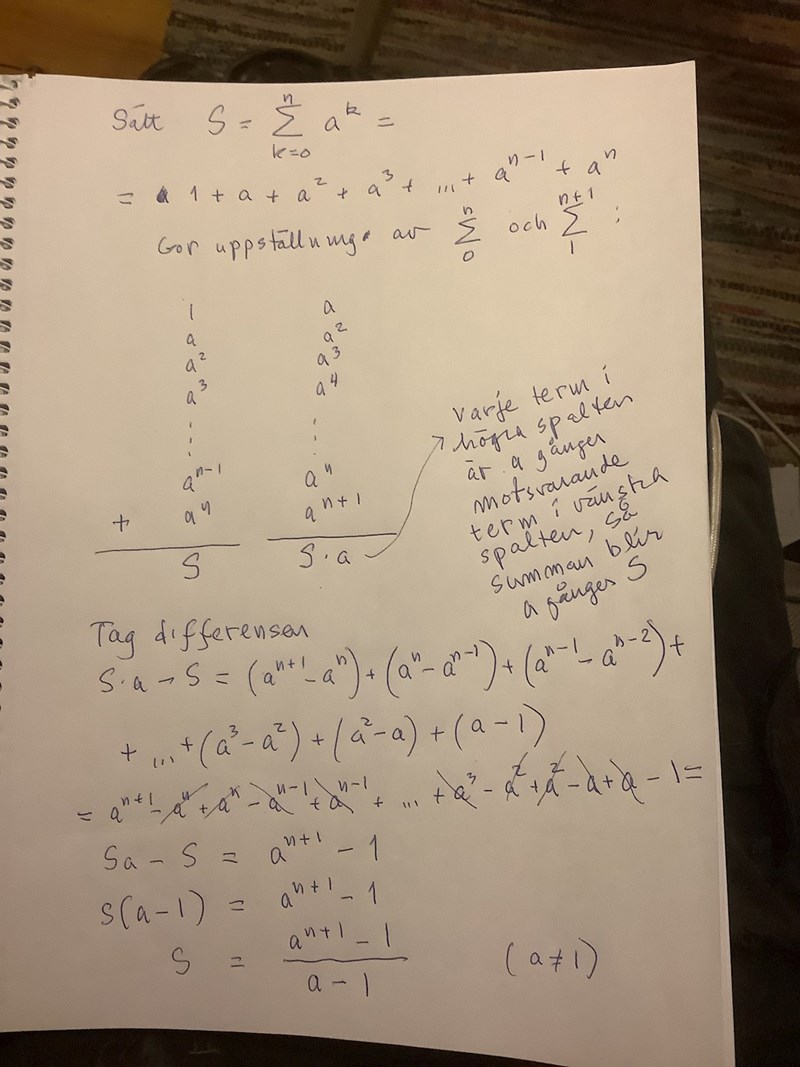 Sätt S = n ∑ k=0 a^k =
= 1 + a + a² + a³ + ... + a^(n-1) + a^n
Gor uppställning av n ∑ 0 och n+1 ∑ 1 :
1 a
a a²
a² a³
a³ a⁴
⋮ ⋮
a^(n-1) a^n
+ a^n a^(n+1)
S S·a
varje term i
högra spalten
är a gånger
motsvarande
term i vänstra
spalten, så
summan blir
a gånger S
Tag differensen
S·a - S = (a^(n+1) - a^n) + (a^n - a^(n-1)) + (a^(n-1) - a^(n-2)) +
+ ... + (a³ - a²) + (a² - a) + (a - 1)
= a^(n+1) - a^n + a^n - a^(n-1) + a^(n-1) + ... + a³ - a² + a² - a + a - 1 =
Sa - S = a^(n+1) - 1
S(a-1) = a^(n+1) - 1
S = (a^(n+1) - 1)/(a - 1) (a ≠ 1)